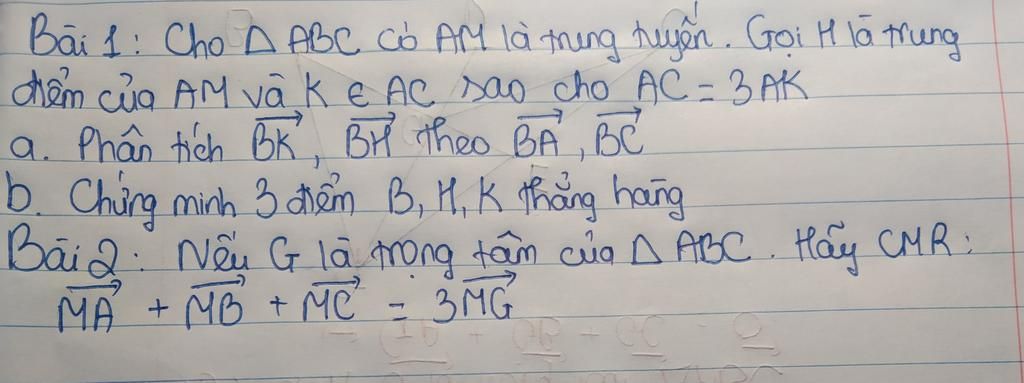 Bài 1: Cho Δ ABC có AM là trung tuyến. Gọi H là trung
điểm của AM và K ∈ AC sao cho AC = 3AK
a. Phân tích \overrightarrow{BK}, \overrightarrow{BH} theo \overrightarrow{BA}, \overrightarrow{BC}
b. Chứng minh 3 điểm B, H, K thẳng hàng
Bài 2: Nếu G là trọng tâm của Δ ABC. Hãy CMR:
\overrightarrow{MA} + \overrightarrow{MB} + \overrightarrow{MC} = 3\overrightarrow{MG}